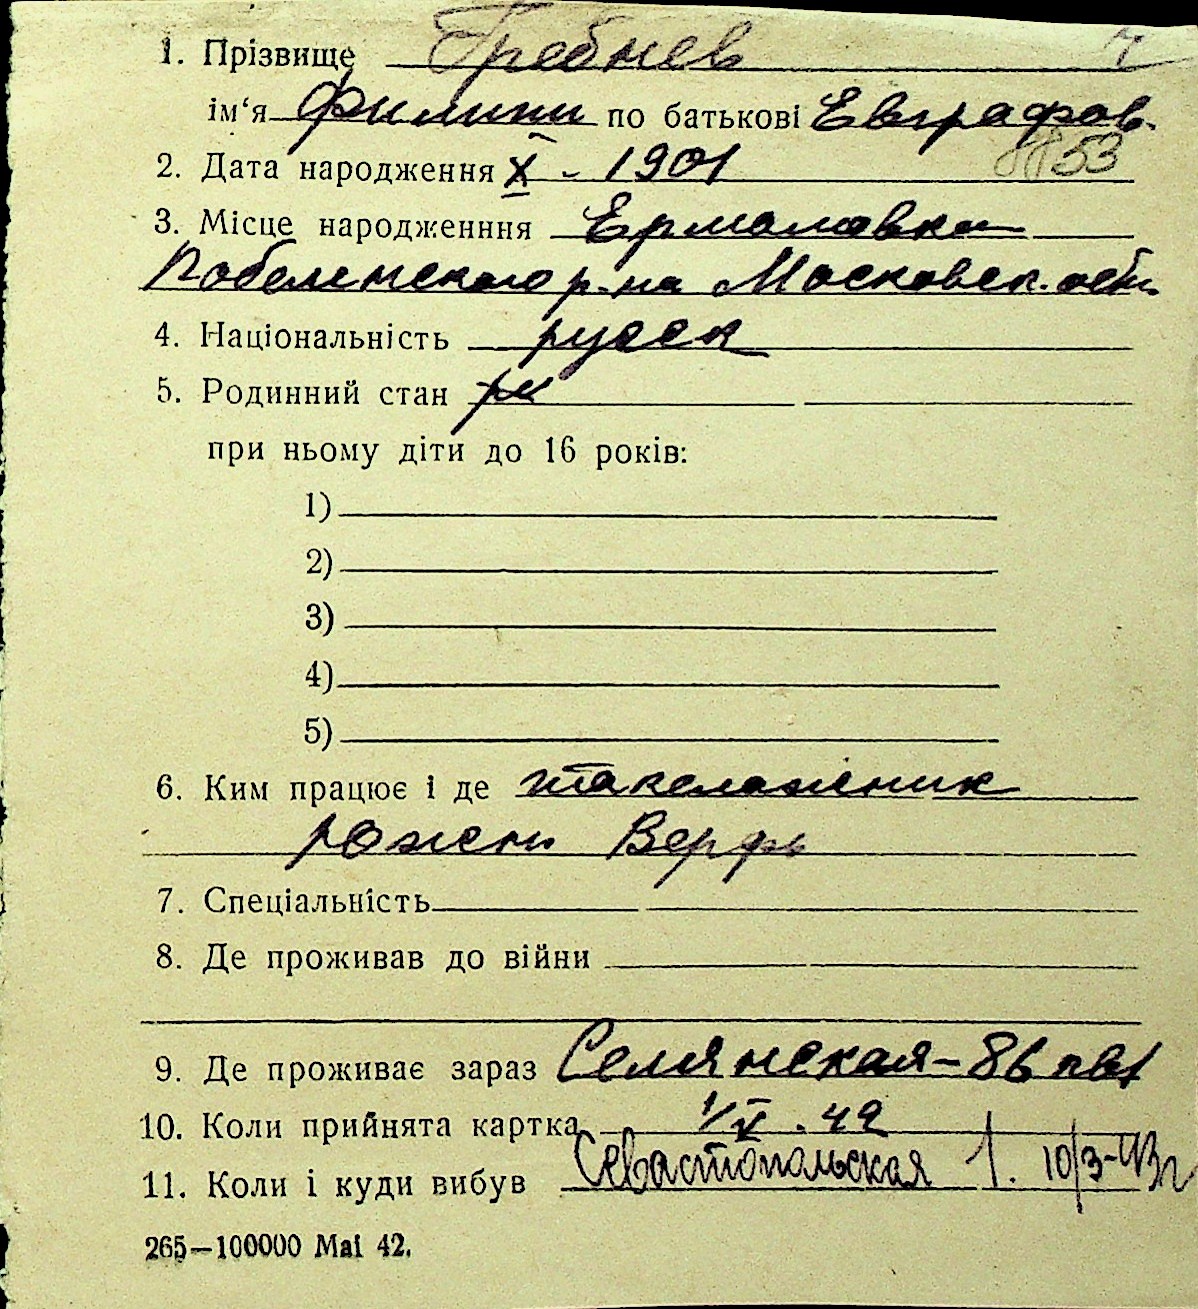 1. Прізвище Гребнев
ім‘я Филипп по батькові Евграфов.
53
2. Дата народження X - 1901
3. Місце народженння Ермаловка
р-на Московск. обл.
4. Національність русск
5. Родинний стан
при ньому діти до 16 років:
1)
2)
3)
4)
5)
6. Ким працює і де такелажник
Верфь
7. Спеціальність
8. Де проживав до війни
9. Де проживає зараз Селянская - 86 кв 1
10. Коли прийнята картка 1/V. 42
11. Коли і куди вибув Севастопольская 1. 10/3-43 г
265—100000 Mai 42.